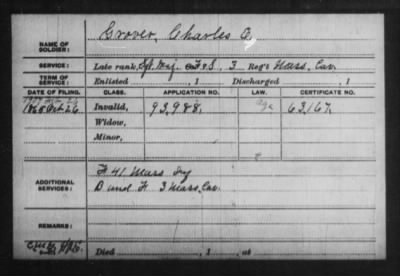 NAME OF SOLDIER: Grover, Charles O,
SERVICE: Late rank, Sgt. Maj. F & S, 3 Reg't Mass. Cav.
TERM OF SERVICE: Enlisted , 1 Discharged , 1
DATE OF FILING. CLASS. APPLICATION NO. LAW. CERTIFICATE NO.
1865 Oct 26 Invalid, 93,988, 63,167,
Widow,
Minor,
ADDITIONAL SERVICES: H 41 Mass Inf
D and H 3 Mass. Cav.
REMARKS:
Died , 1 , at